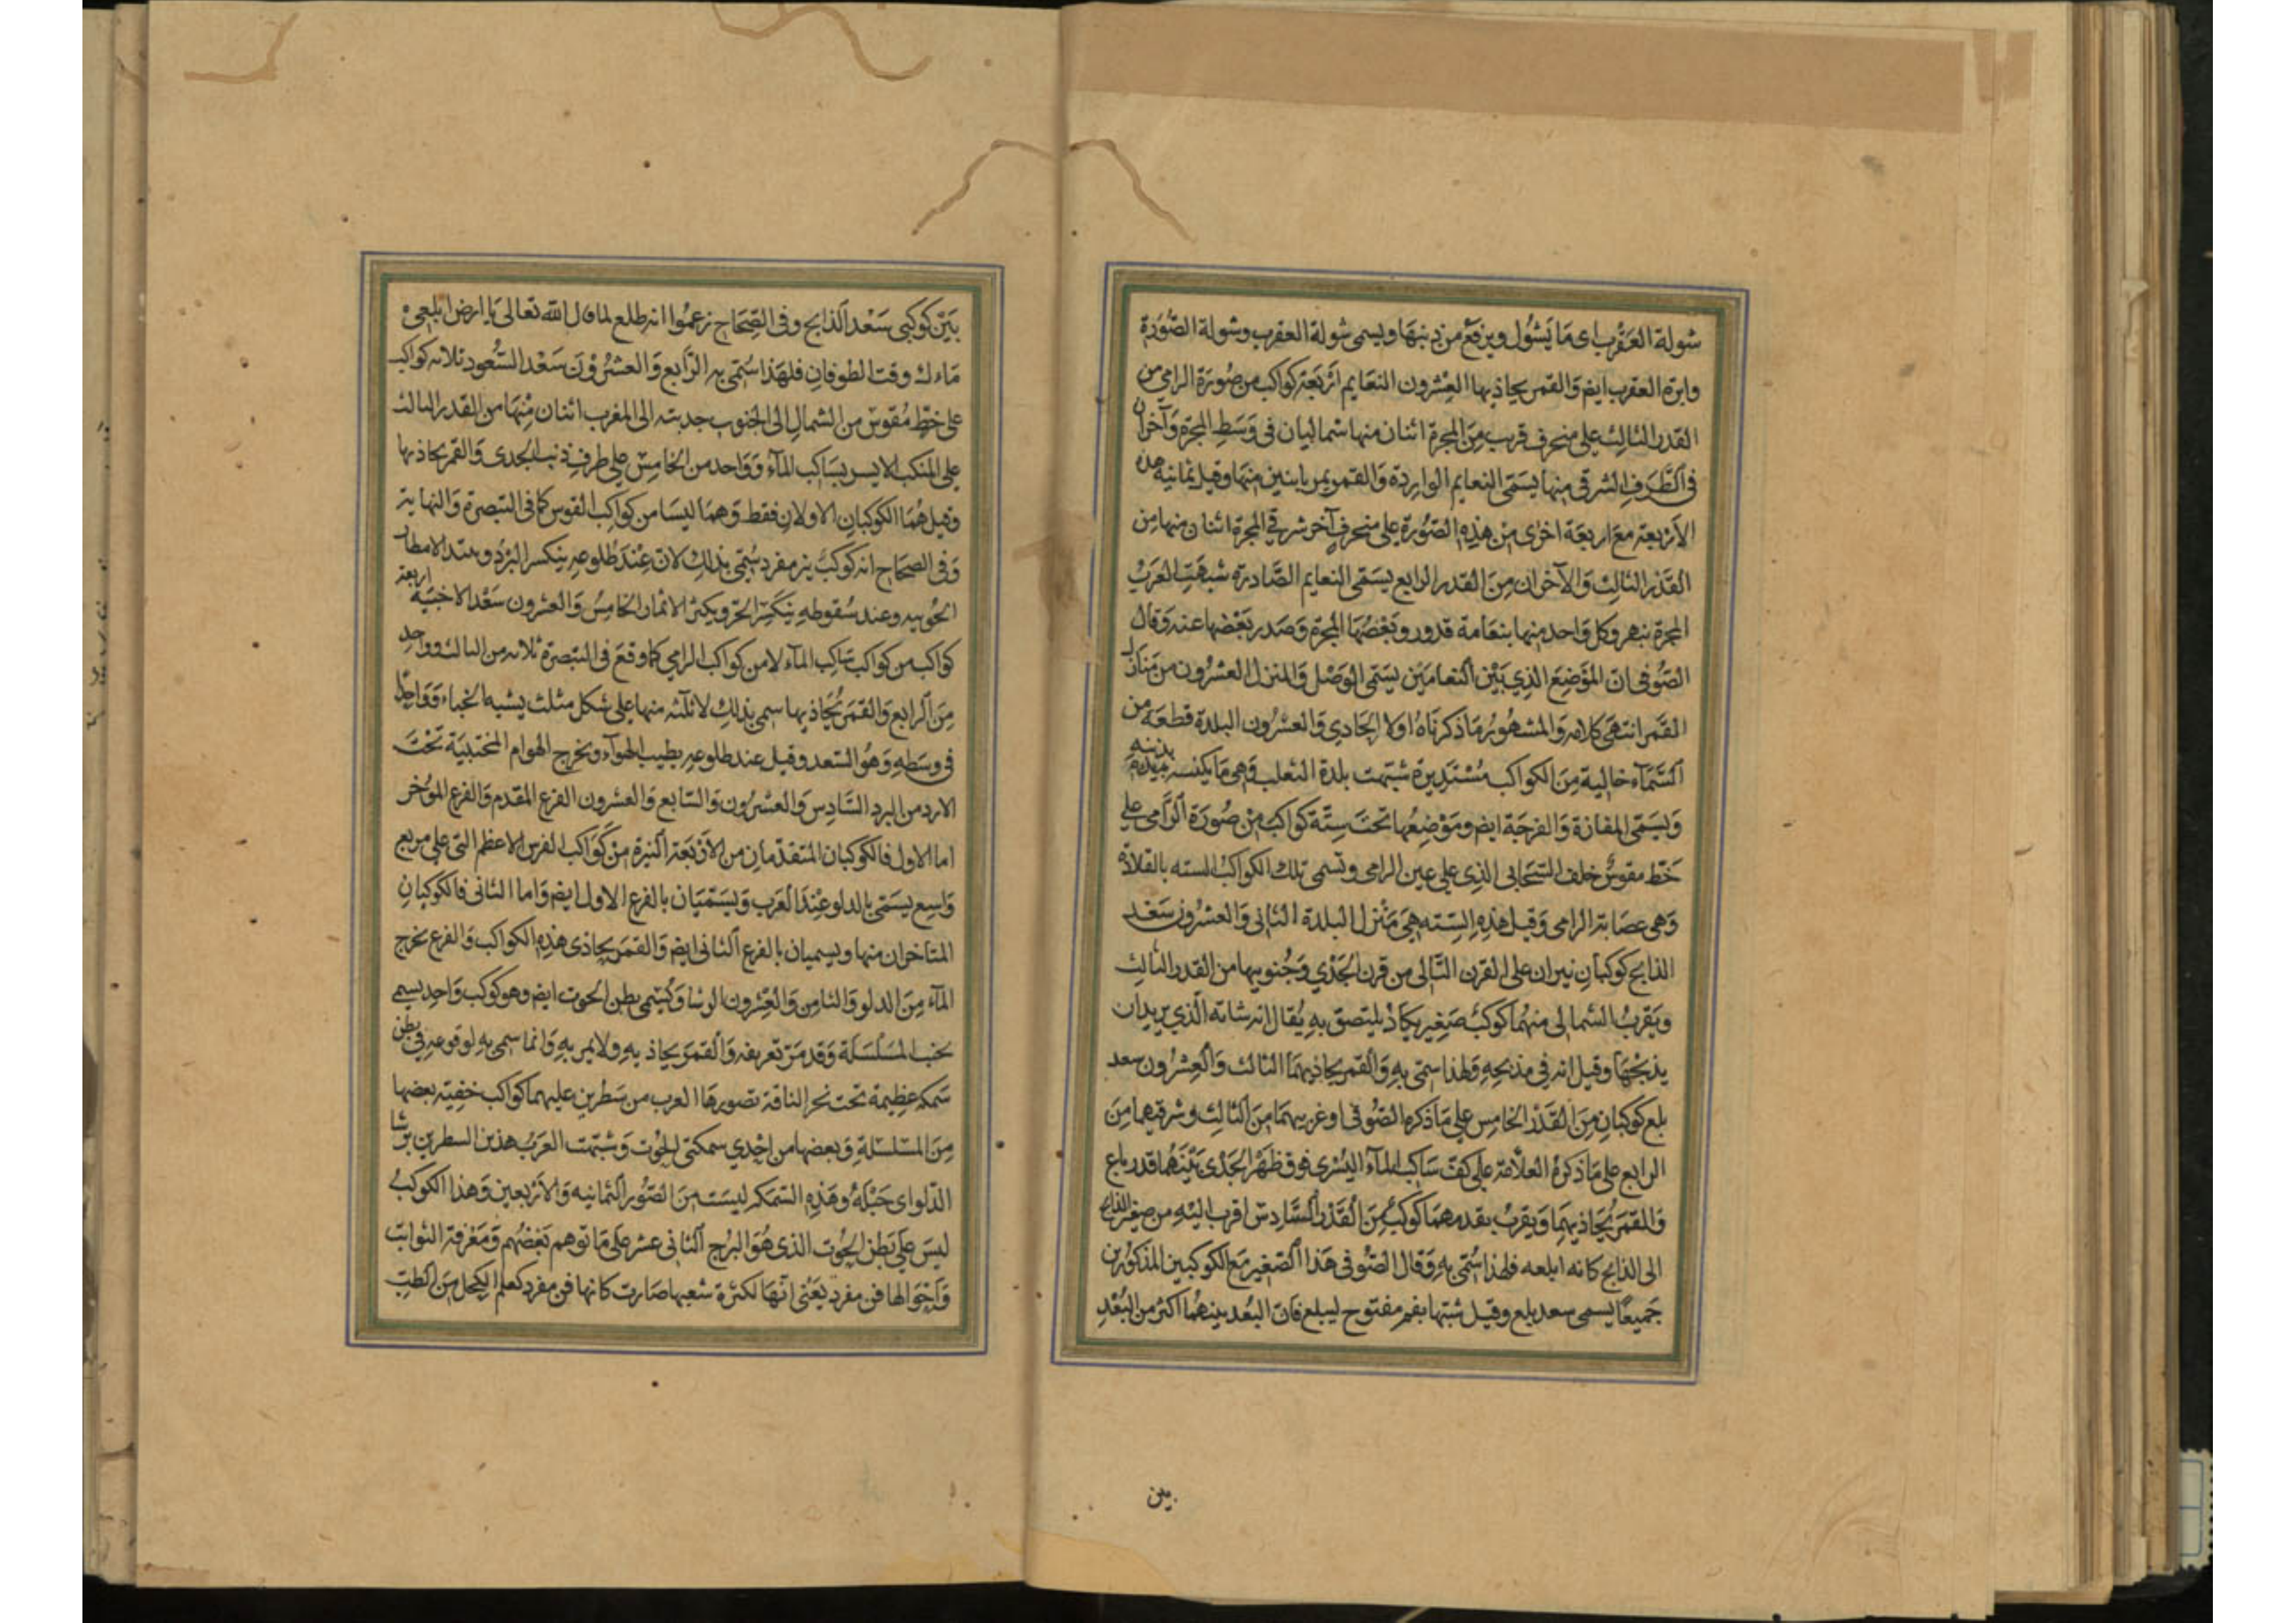 شولة العَقْرب اى مَا يَشُول ويرفَع من ذنبهَا ويسمى شولة العقرب وشولة الصُّورَة
وابرة العقرب ايض وَالقمر يحاذيها العِشرون النعَايم اَرْبَعَة كواكب من صُورَة الرامى من
القَدر الثالِث على منحرف قريب مِنَ المجرة اثنان منها شماليان فى وَسَطِ المجرة وَآخران
فى الطَّرَفِ الشرقى منها يسَمّى النعايم الوارِدة وَالقمر يمر باثنين منهَا وقيل ثمانية هذه
الأرْبعة مَعَ اربعَة اخرى من هذِهِ الصُّورَة على منحرفٍ آخر شرقى المجرة اثنان منها مِن
القَدْر الثالِث وَالآخران مِنَ القدر الرابع يسَمّى النعايم الصَّادرة شبهَت العَرَبُ
المجرة بنهر وكل وَاحد منها بنعَامة قدورد بَعْضُهَا المجرة وَصَدر بَعْضها عنه وَقال
الصُّوفى ان المَوْضِعَ الذِي بَيْن النعامَيَن يسَمّى الوَصْل وَالمنزل العشرُون من مَنازل
القَمَر انتهَى كلامه وَالمشهُور مَا ذكرنَاهُ اولا الحَادِي وَالعشرُون البلدة قطعَة من
السَّمَآء خالِية مِنَ الكواكب مُسْتَدِيرَة شبّهت بلدة الثعلب وَهى مَا يكنسه بذنبه
وَيسَمّى المفازة وَالفرجَة ايض ومَوْضِعُها تحَت سِتَّة كواكب مِنْ صُورَة الرَّامى على
خَطّ مقوسٍ خلف السَّحَابى الذِى على عين الرامى وتسمى تلك الكواكبُ السته بالقلادة
وَهى عصَابة الرامى وَقيل هَذِهِ السِّته هِىَ مَنْزل البلدة الثانِى وَالعشرُون سَعْد
الذابح كوكبَانِ نيران على القرن التَّالى من قرنى الجَدْي وَجُنوبيها من القدر الثالِث
وبَقربُ الشمالى منهُما كوكبٌ صَغِير يكَادُ يلتصِق بهِ يُقال انه شاته الّذي يريد ان
يذبحَهَا وقيل انه فى مذبحهِ وَلهَذا سمّى بهِ وَالقمر يحَاذيهمَا الثالث وَالعِشْرُون سعد
بلع كوكبَانِ مِنَ القَدْر الخامِس على مَا ذكره الصُّوفى اوغربيهمَا مِنَ الثالِث وشرقيهما مِنَ
الرابع على مَا ذكرهُ العلَّامَة على كفّ سَاكِب المآء اليُسْرى فوق ظَهْر الجَدْى بَيْنَهُمَا قدر باع
وَالقمَر يُحَاذيهَما وَيقربُ بقدمهمَا كوكبٌ مِنَ القَدْر السَّادِس اقرب اليَهِ من صغير الذابح
الى الذابح كانه ابلعه فلهذا سُمّى بهِ وَقال الصُّوفى هَذا الصَّغِير مَعَ الكوكبين المذكورين
جَميعًا يسمى سعد بلع وقيل شبّها بفمٍ مفتوح ليبلع فان البُعد بينهُما اكثر من البُعْدِ
بين
بَيَن كوكبَى سَعْد الذابح وفى الصِّحَاح زعمُوا انه طلع لما قال الله تعالى يَا ارض ابلعِى
مَاءك وقت الطوفانِ فلهَذا سُمّى بهِ الرَّابع وَالعشرُوْنَ سَعْد السُّعود ثلاثه كواكب
على خطٍّ مُقوس من الشمالِ الى الجنوب حدبته الى المغرب اثنان مِنْهَا من القدر الثالث
على المنكب الايسر لِسَاكب المآء وَوَاحد من الخامِس على طرف ذنب الجَدى وَالقمر يحاذيها
وقيل هُمَا الكوكبان الاولان فقط وَهمَا ليسَا من كواكب القوس كما فى التبصرة وَالنهاية
وَفى الصحَاح انه كوكبٌ نير مفرد سُمّى بذلك لانه عِنْدَ طُلوعهِ ينكسر البَرْدُ ويبتد الامطار
الجُوبيه وعند سُقوطهِ يَنكسِر الحرّ ويكثر الاثمار الخامِسُ وَالعشرُون سَعْد الاخبيَة اربعة
كواكب من كواكب سَاكِب المآء لا من كواكب الرامى كما وقعَ فى التبصرة ثلاثه من الثالث وَوَاحِد
مِنَ الرابع وَالقمَر يُحَاذيها سمى بذلِك لان ثلثة منها على شكل مثلث يشبه الخباء وَوَاحِدًا
فى وسَطهِ وَهُوَ السّعد وقيل عند طلوعهِ يطيب الهوآء ويخرج الهوام المختبيَة تَحْتَ
الارد من البرد السَّادِس وَالعشرُون وَالسَّابع وَالعشرون الفرع المقدم وَالفرع المؤخر
اما الاول فالكوكبان المتقدّمانِ من الأرْبعَة النيرة مِنْ كَوَاكب الفرس الاعظم التى على مربع
وَاسع يسَمّى بالدلو عِنْدَ العَرَب وَيسَمّيَان بالفرع الاول ايض وَاما الثانى فالكوكبانِ
المتاخران منها ويسميان بالفرع الثانى ايض وَالقمَر يحَاذى هذِهِ الكواكب وَالفرع مخرج
المآء مِنَ الدلو وَالثامِن وَالعِشْرون الرشا وَيُسَمّى بطن الحوت ايض وهو كوكب وَاحِد يسمى
بجنب المسَلْسَلَة وَقد مَرّ تعريفه وَالقمَر يحاذيهِ وَلايمر بهِ وَانما سمى بهِ لوقوعهِ فى بطن
سَمكة عَظِيمَة تحت نحر الناقة تصورهَا العرب من سَطرين عليهما كواكب خفيّة بعضها
مِنَ المسَلسَلة وَبعضها من احْدي سمكتى الحُوْت وَشبّهت العَرَبُ هذين السطرين برشا
الدّلو اى حَبْله وهَذهِ السَّمكة ليسَت مِنَ الصُّور الثمانيه وَالأرْبعين وَهذا الكوكب
ليسَ على بَطن الحُوْت الذى هُوَ البُرج الثانى عشر على مَا توهم بَعْضُهم وَمَعْرفة الثوابت
وَاَحْوَالها فن مفرد يَعْنى انّهَا لكثرَة شعبها صَارت كانها فن مفرد كعلم الكحل من الطبّ